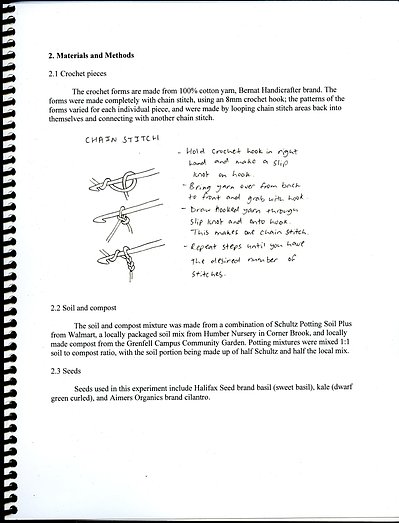 2. Materials and Methods
2.1 Crochet pieces
The crochet forms are made from 100% cotton yarn, Bernat Handicrafter brand. The
forms were made completely with chain stitch, using an 8mm crochet hook; the patterns of the
forms varied for each individual piece, and were made by looping chain stitch areas back into
themselves and connecting with another chain stitch.
CHAIN STITCH
- Hold crochet hook in right
hand and make a slip
knot on hook.
- Bring yarn over from back
to front and grab with hook
- Draw hooked yarn through
slip knot and onto hook.
This makes one chain stitch.
- Repeat steps until you have
the desired number of
stitches.
2.2 Soil and compost
The soil and compost mixture was made from a combination of Schultz Potting Soil Plus
from Walmart, a locally packaged soil mix from Humber Nursery in Corner Brook, and locally
made compost from the Grenfell Campus Community Garden. Potting mixtures were mixed 1:1
soil to compost ratio, with the soil portion being made up of half Schultz and half the local mix.
2.3 Seeds
Seeds used in this experiment include Halifax Seed brand basil (sweet basil), kale (dwarf
green curled), and Aimers Organics brand cilantro.